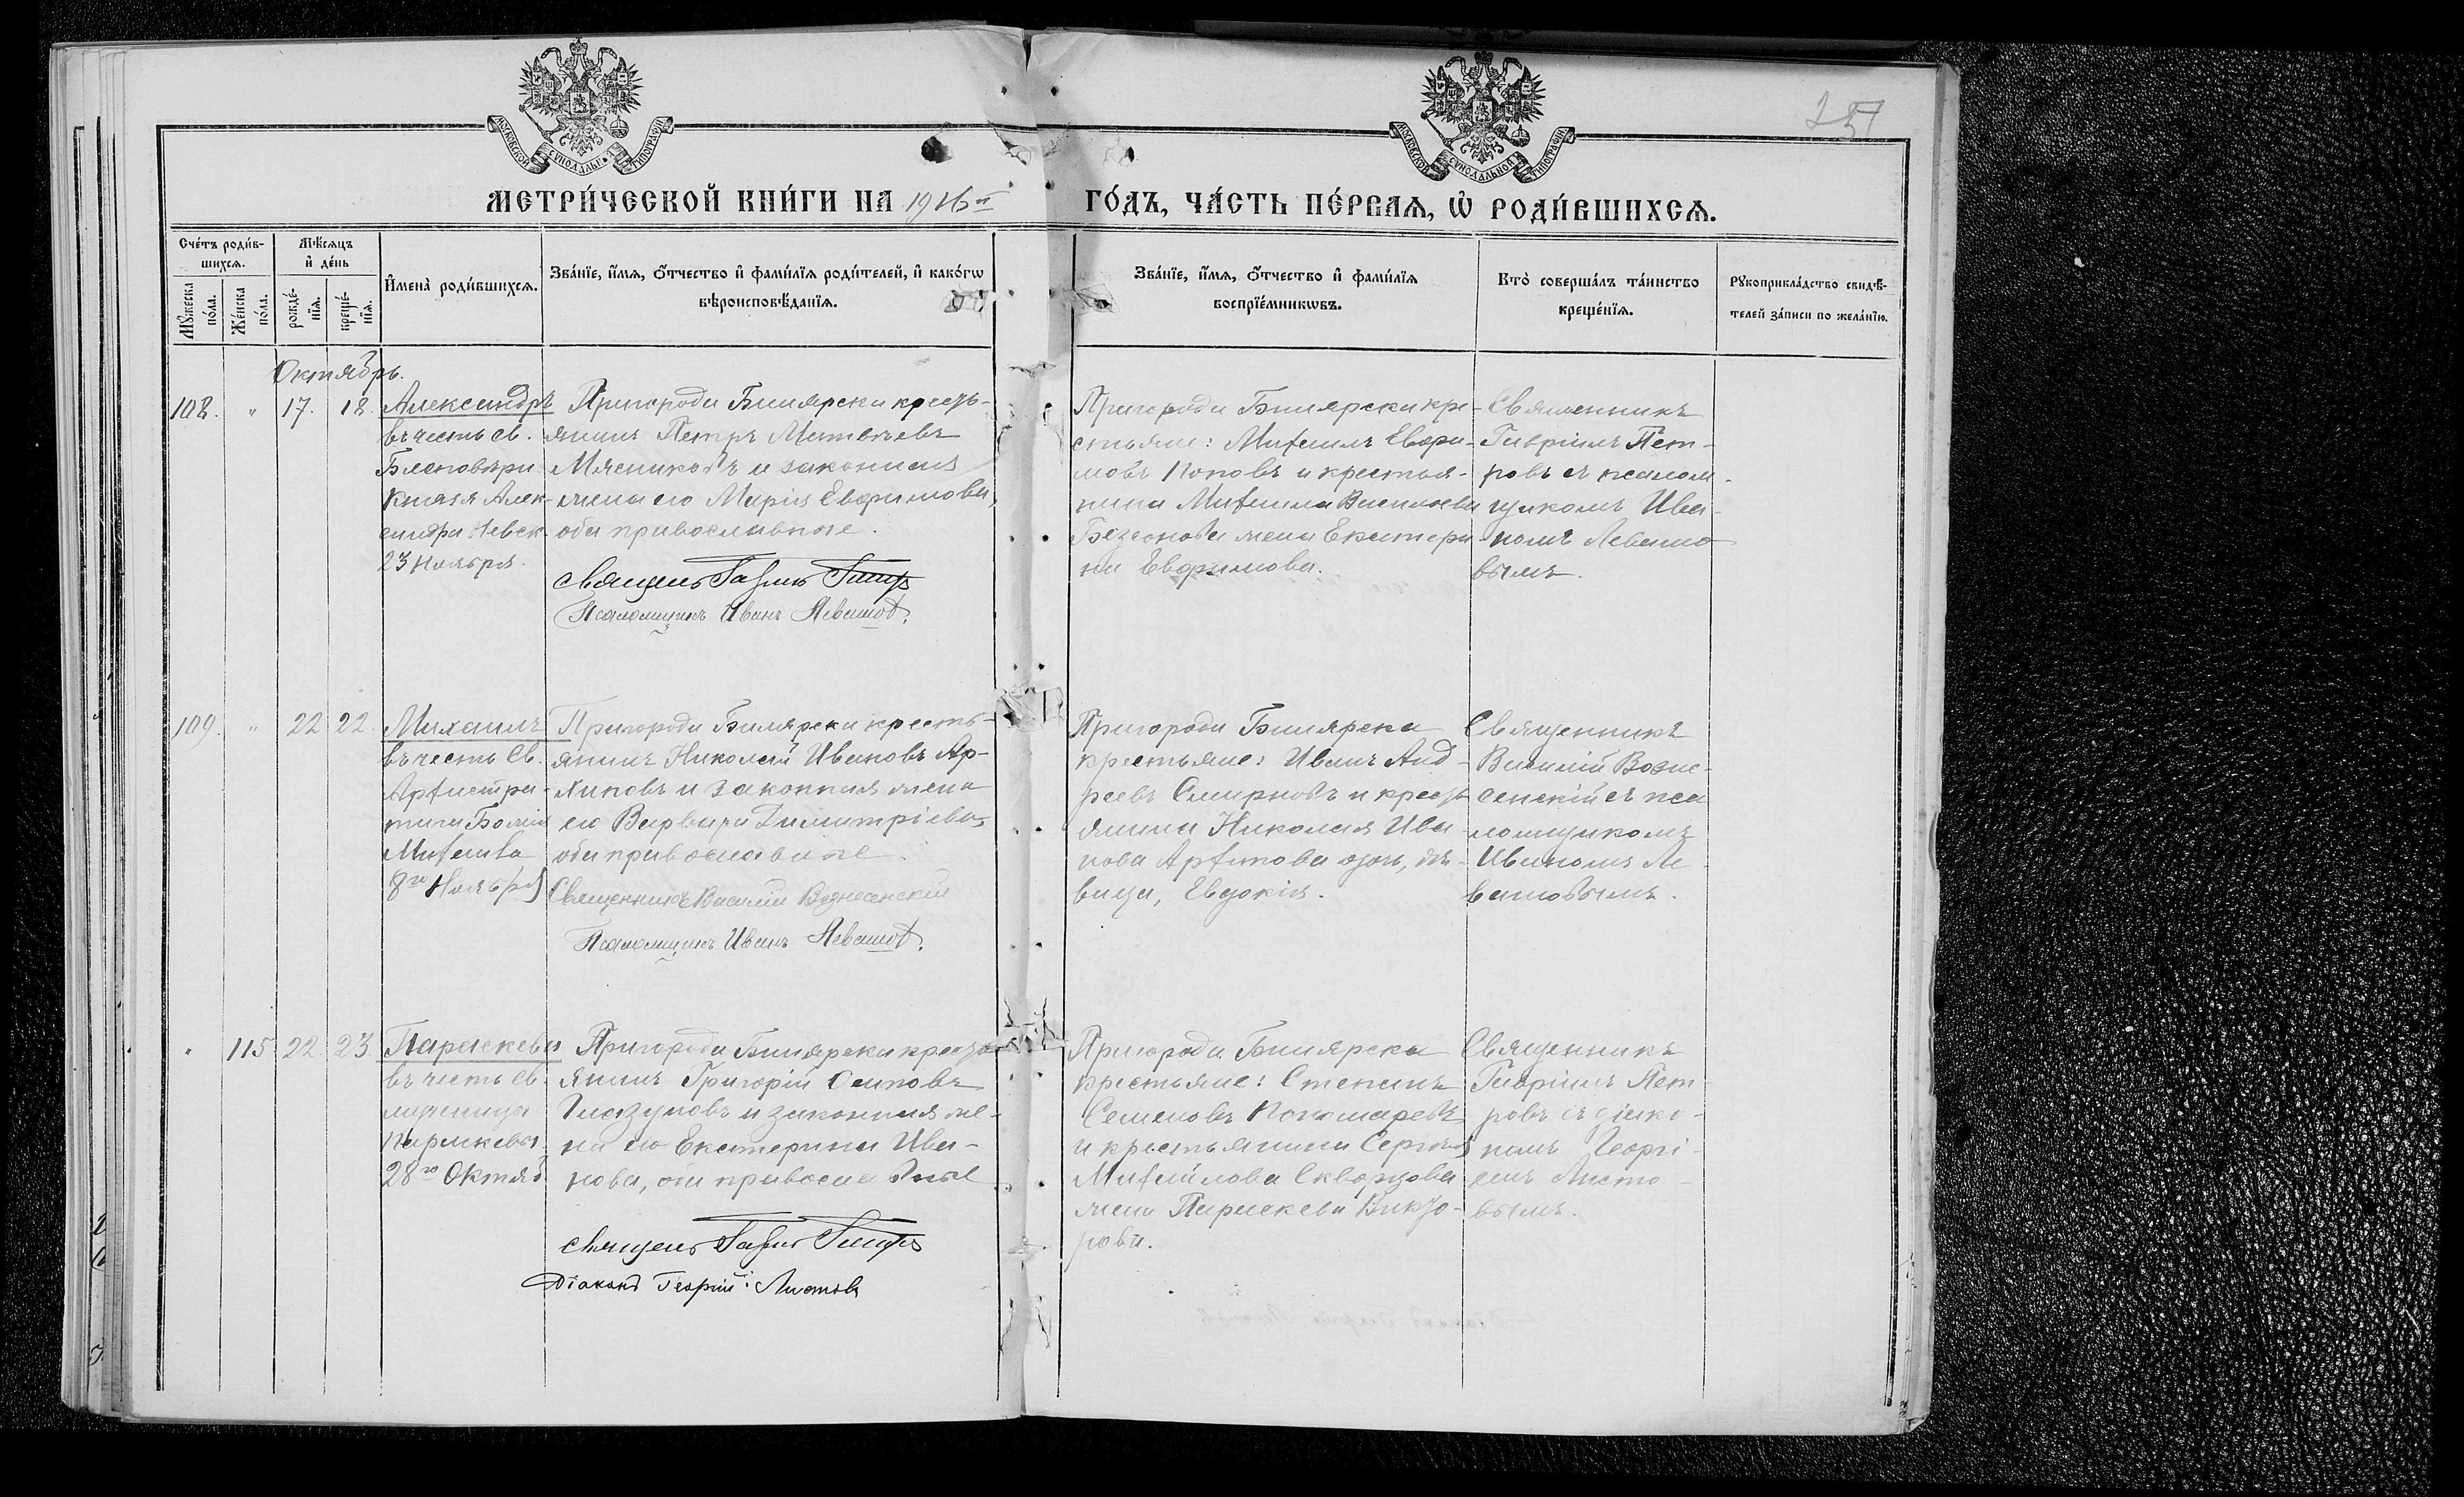 257
МОСКОВСКОЙ СУНОДАЛЬНОЙ ТИПОГРАФІИ
МОСКОВСКОЙ СУНОДАЛЬНОЙ ТИПОГРАФІИ
МЕТРИ́ЧЕСКОЙ КНИ́ГИ НА 1916й ГО́ДЪ, ЧА́СТЬ ПЕ́РВАѦ, Ѡ҆ РОДИ́ВШИХСѦ.
Сче́тъ роди́в-
шихсѧ.
Мꙋжеска по́ла.
Же́нска по́ла.
Мѣ́сѧцъ
и҆ де́нь
рожде́-
нїѧ.
креще́-
нїѧ.
И҆мена̀ роди́вшихсѧ.
Зва́нїе, и҆́мѧ, ѻ҆́тчество и҆ фами́лїѧ роди́телей, и҆ како́гѡ
вѣроисповѣ́данїѧ.
Зва́нїе, и҆́мѧ, ѻ҆́тчество и҆ фами́лїѧ
воспрїе́мникѡвъ.
Кто̀ соверша́лъ та́инство
креще́нїѧ.
Рꙋкоприкла́дство свидѣ́-
телей за́писи по жела́нїю.
Октябрь.
108. " 17. 18.
Александръ
въ честь св.
Благовѣрн.
Князя Алек-
сандра Невск.
23 Ноября.
Пригорода Билярска кресть-
янинъ Петръ Матвѣевъ
Мясниковъ и законная
жена его Марія Евфимова,
оба православные.
Священ. Гавріилъ Петровъ
Псаломщикъ Иванъ Левашовъ.
Пригорода Билярска кре-
стьяне: Михаилъ Евфи-
мовъ Поповъ и крестья-
нина Михаила Васильева
жена Екатери
на Евфимова.
Священникъ
Гавріилъ Пет-
ровъ съ псалом-
щикомъ Ива-
номъ Левашо-
вымъ.
109. " 22 22.
Михаилъ
въ честь Св.
Архистра-
тига Божія
Михаила
8го Ноября
Пригорода Билярска кресть-
янинъ Николай Ивановъ Ар-
хиповъ и законная жена
его Варвара Димитріева,
оба православные.
Священникъ Василій Вознесенскій
Псаломщикъ Иванъ Левашовъ.
Пригорода Билярска
крестьяне: Иванъ Анд-
реевъ Смирновъ и кресть
янина Николая Ива-
нова Архипова дочь, дѣ-
вица, Евдокія.
Священникъ
Василій Возне-
сенскій съ пса
ломщикомъ
Иваномъ Ле-
вашовымъ.
" 115 22. 23.
Параскева
въ честь св.
мученицы
Параскевы
28го Октяб.
Пригорода Билярска кресть
янинъ Григорій Осиповъ
Глазуновъ и законная же-
на его Екатерина Ива-
нова, оба православные
Священ. Гавріилъ Петровъ
Діаконъ Георгій Листовъ
Пригорода Билярска
крестьяне: Степанъ
Семеновъ Пономаревъ
и крестьянина Сергѣя
Михайлова Скворцова
жена Параскева Викто-
рова.
Священникъ
Гавріилъ Пет-
ровъ съ діако-
номъ Георгі-
емъ Листо-
вымъ.